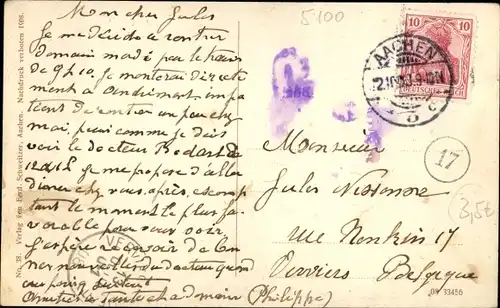 Mon cher Jules
Je me décide à rentrer
demain mardi par le train
de 9h10. Je monterai directe
ment à Andrimont, impa
tient de rentrer un peu chez
moi, puis comme je dois
voir le docteur Bodart de
12 à 1 h je me propose d'aller
diner chez vous, après, escomp
tant le moment le plus fa
vorable pour vous voir
J'espère recevoir de
nouvelles du docteur quand
Amitiés à toute et à demain
(Philippe)
No. 38. Verlag von Emil Schweitzer, Aachen. Nachdruck verboten 1908.
5100
10 10
DEUTSCHES REICH
AACHEN
5
Monsieur
Jules
17
rue Nonkin 17
3,5€
Verviers Belgique
09 33456